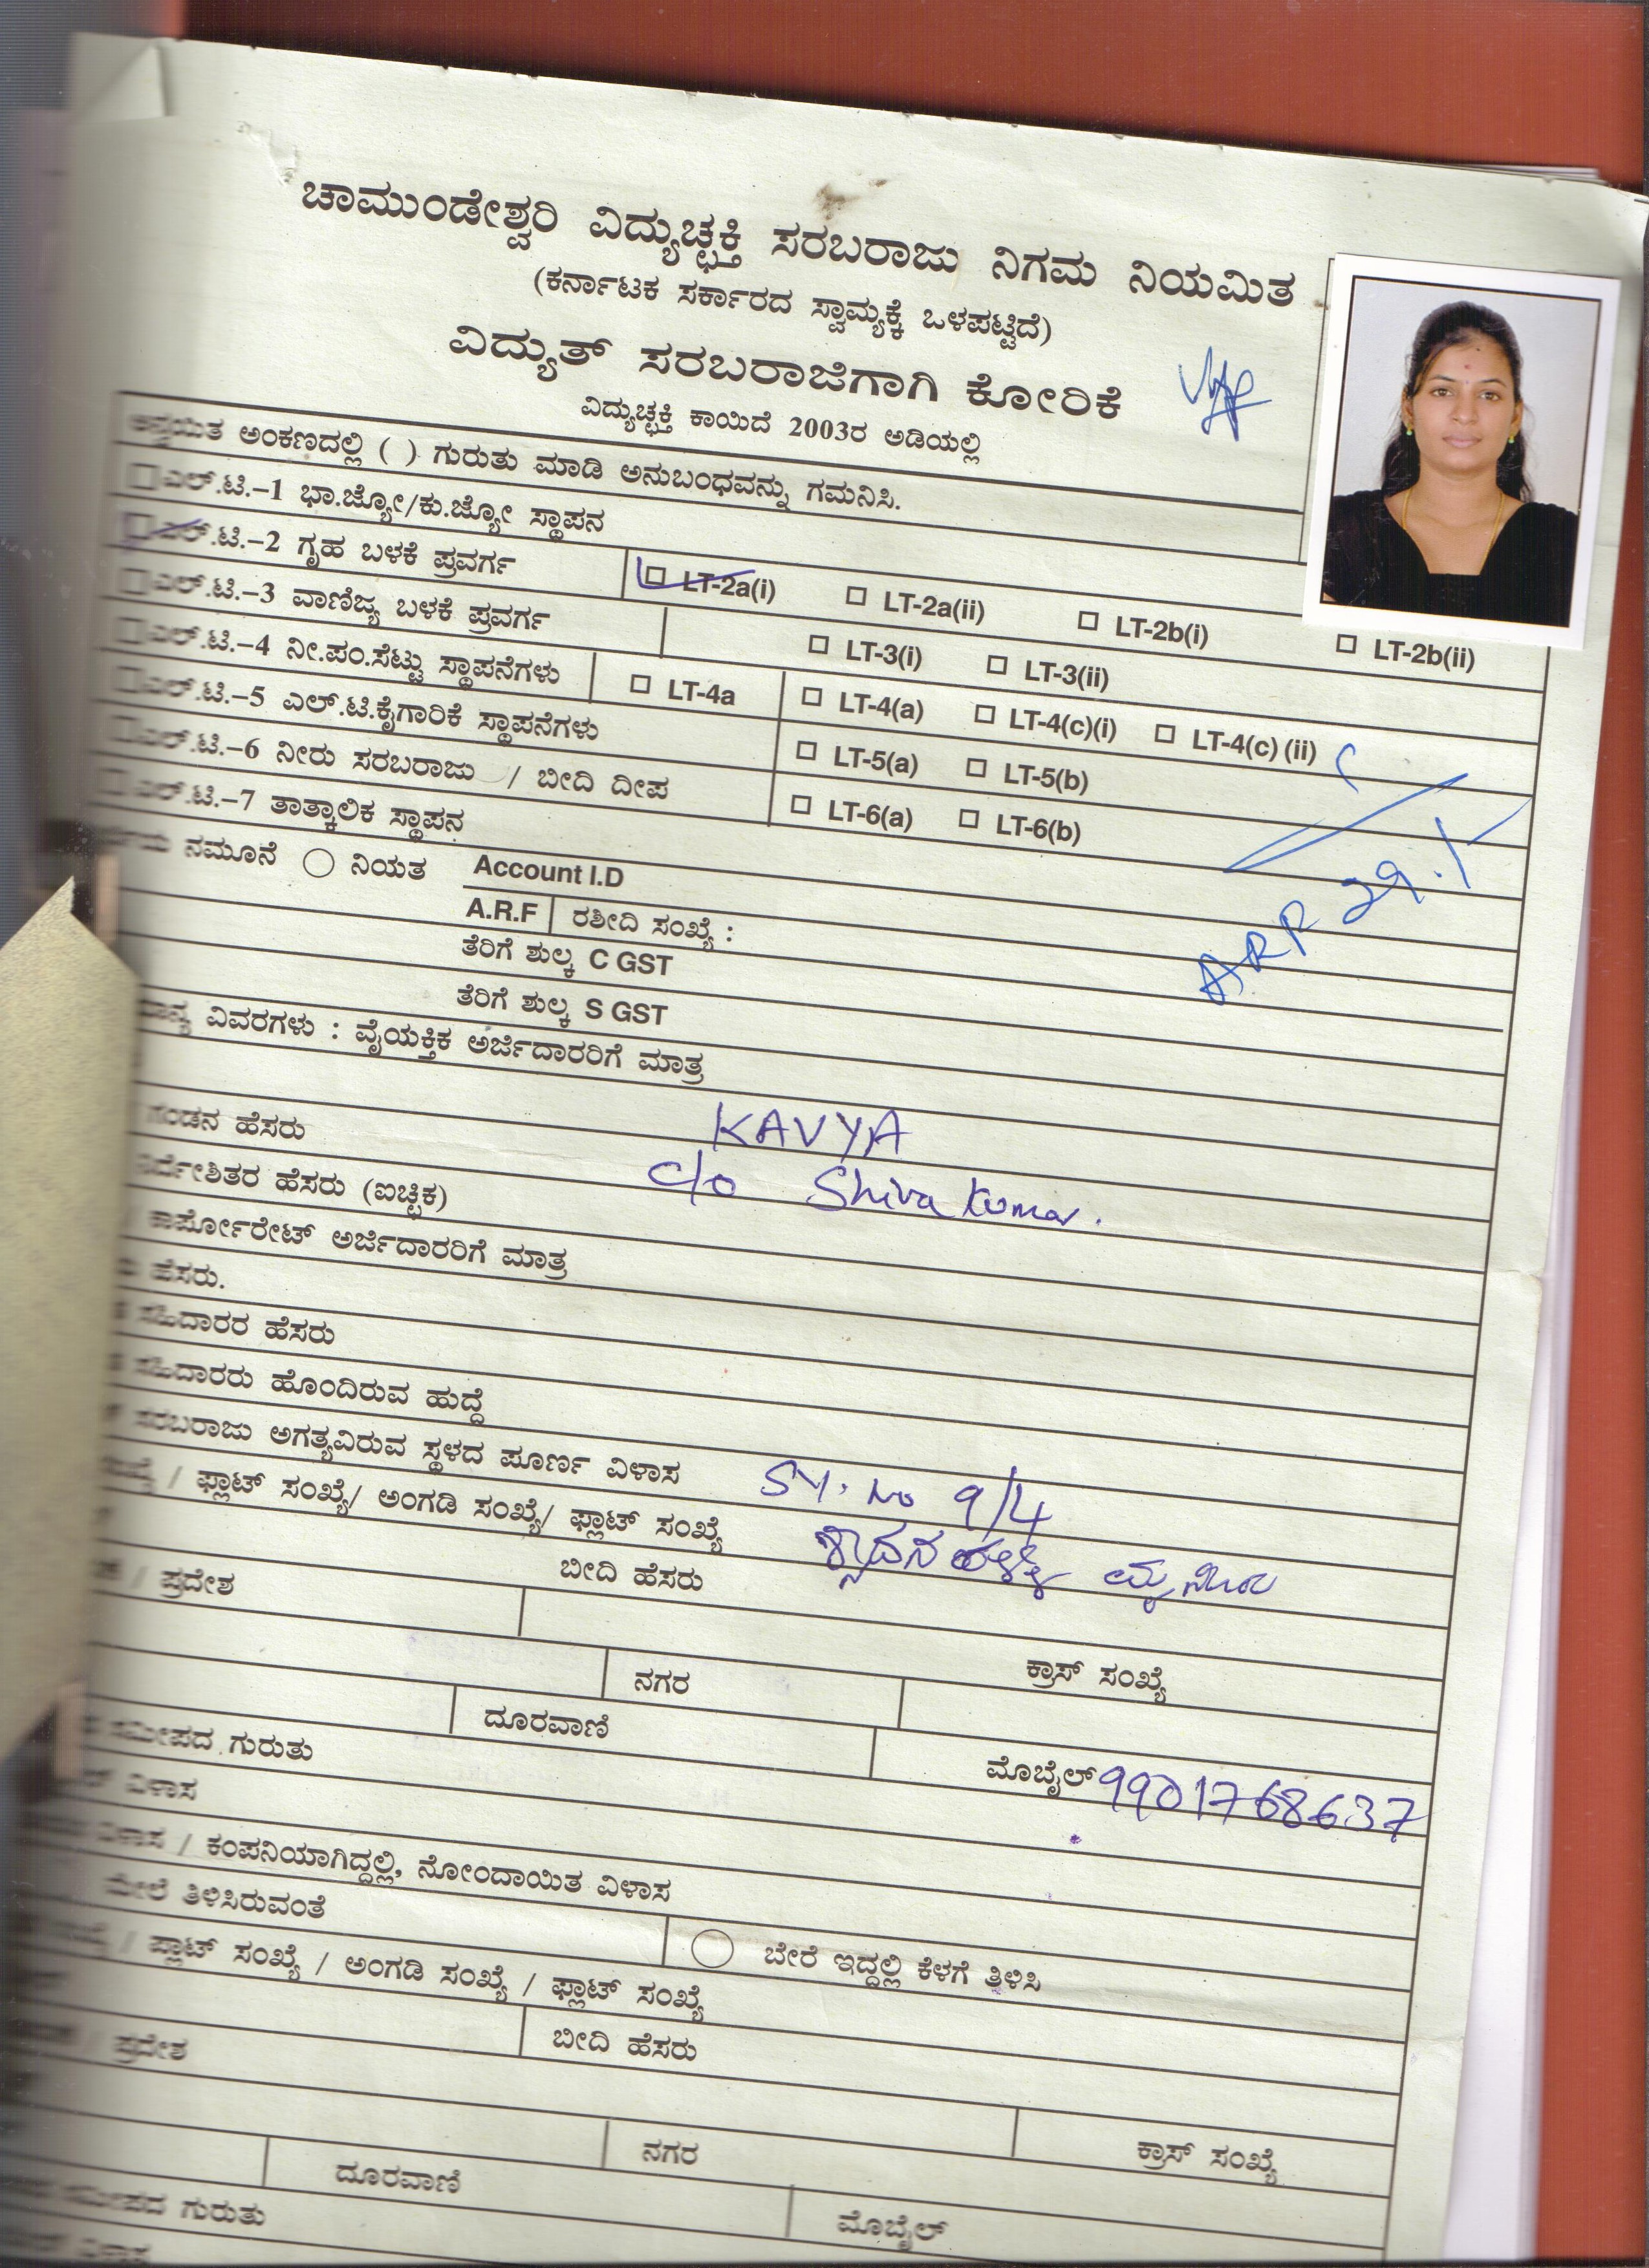 ಚಾಮುಂಡೇಶ್ವರಿ ವಿದ್ಯುಚ್ಛಕ್ತಿ ಸರಬರಾಜು ನಿಗಮ ನಿಯಮಿತ
(ಕರ್ನಾಟಕ ಸರ್ಕಾರದ ಸ್ವಾಮ್ಯಕ್ಕೆ ಒಳಪಟ್ಟಿದೆ)
ವಿದ್ಯುತ್ ಸರಬರಾಜಿಗಾಗಿ ಕೋರಿಕೆ
ವಿದ್ಯುಚ್ಛಕ್ತಿ ಕಾಯಿದೆ 2003ರ ಅಡಿಯಲ್ಲಿ
ಅನ್ವಯಿತ ಅಂಕಣದಲ್ಲಿ ( ) ಗುರುತು ಮಾಡಿ ಅನುಬಂಧವನ್ನು ಗಮನಿಸಿ.
ಎಲ್.ಟಿ.–1 ಭಾ.ಜ್ಯೋ/ಕು.ಜ್ಯೋ ಸ್ಥಾಪನ
ಎಲ್.ಟಿ.–2 ಗೃಹ ಬಳಕೆ ಪ್ರವರ್ಗ LT-2a(i) LT-2a(ii) LT-2b(i) LT-2b(ii)
ಎಲ್.ಟಿ.–3 ವಾಣಿಜ್ಯ ಬಳಕೆ ಪ್ರವರ್ಗ LT-3(i) LT-3(ii)
ಎಲ್.ಟಿ.–4 ನೀ.ಪಂ.ಸೆಟ್ಟು ಸ್ಥಾಪನೆಗಳು LT-4a LT-4(a) LT-4(c)(i) LT-4(c) (ii)
ಎಲ್.ಟಿ.–5 ಎಲ್.ಟಿ.ಕೈಗಾರಿಕೆ ಸ್ಥಾಪನೆಗಳು LT-5(a) LT-5(b)
ಎಲ್.ಟಿ.–6 ನೀರು ಸರಬರಾಜು / ಬೀದಿ ದೀಪ LT-6(a) LT-6(b)
ಎಲ್.ಟಿ.–7 ತಾತ್ಕಾಲಿಕ ಸ್ಥಾಪನ
ನಮೂನೆ ನಿಯತ Account I.D
A.R.F ರಶೀದಿ ಸಂಖ್ಯೆ :
ARR 29.1
ತೆರಿಗೆ ಶುಲ್ಕ C GST
ತೆರಿಗೆ ಶುಲ್ಕ S GST
ವಿವರಗಳು : ವೈಯಕ್ತಿಕ ಅರ್ಜಿದಾರರಿಗೆ ಮಾತ್ರ
KAVYA
ಗಂಡನ ಹೆಸರು c/o Shiva Kumar.
ನಿರ್ದೇಶಿತರ ಹೆಸರು (ಐಚ್ಛಿಕ)
ಕಾರ್ಪೋರೇಟ್ ಅರ್ಜಿದಾರರಿಗೆ ಮಾತ್ರ
ಹೆಸರು.
ಸಹಿದಾರರ ಹೆಸರು
ಸಹಿದಾರರು ಹೊಂದಿರುವ ಹುದ್ದೆ
ಸರಬರಾಜು ಅಗತ್ಯವಿರುವ ಸ್ಥಳದ ಪೂರ್ಣ ವಿಳಾಸ SY. No 9/4
/ ಫ್ಲಾಟ್ ಸಂಖ್ಯೆ/ ಅಂಗಡಿ ಸಂಖ್ಯೆ/ ಫ್ಲಾಟ್ ಸಂಖ್ಯೆ
ಬೀದಿ ಹೆಸರು
/ ಪ್ರದೇಶ
ನಗರ ಕ್ರಾಸ್ ಸಂಖ್ಯೆ
ದೂರವಾಣಿ ಮೊಬೈಲ್ 9901768637
ಸಮೀಪದ ಗುರುತು
ವಿಳಾಸ
ವಿಳಾಸ / ಕಂಪನಿಯಾಗಿದ್ದಲ್ಲಿ, ನೋಂದಾಯಿತ ವಿಳಾಸ
ಮೇಲೆ ತಿಳಿಸಿರುವಂತೆ ಬೇರೆ ಇದ್ದಲ್ಲಿ ಕೆಳಗೆ ತಿಳಿಸಿ
/ ಫ್ಲಾಟ್ ಸಂಖ್ಯೆ / ಅಂಗಡಿ ಸಂಖ್ಯೆ / ಫ್ಲಾಟ್ ಸಂಖ್ಯೆ
ಬೀದಿ ಹೆಸರು
/ ಪ್ರದೇಶ
ನಗರ ಕ್ರಾಸ್ ಸಂಖ್ಯೆ
ದೂರವಾಣಿ ಮೊಬೈಲ್
ಸಮೀಪದ ಗುರುತು
ವಿಳಾಸ